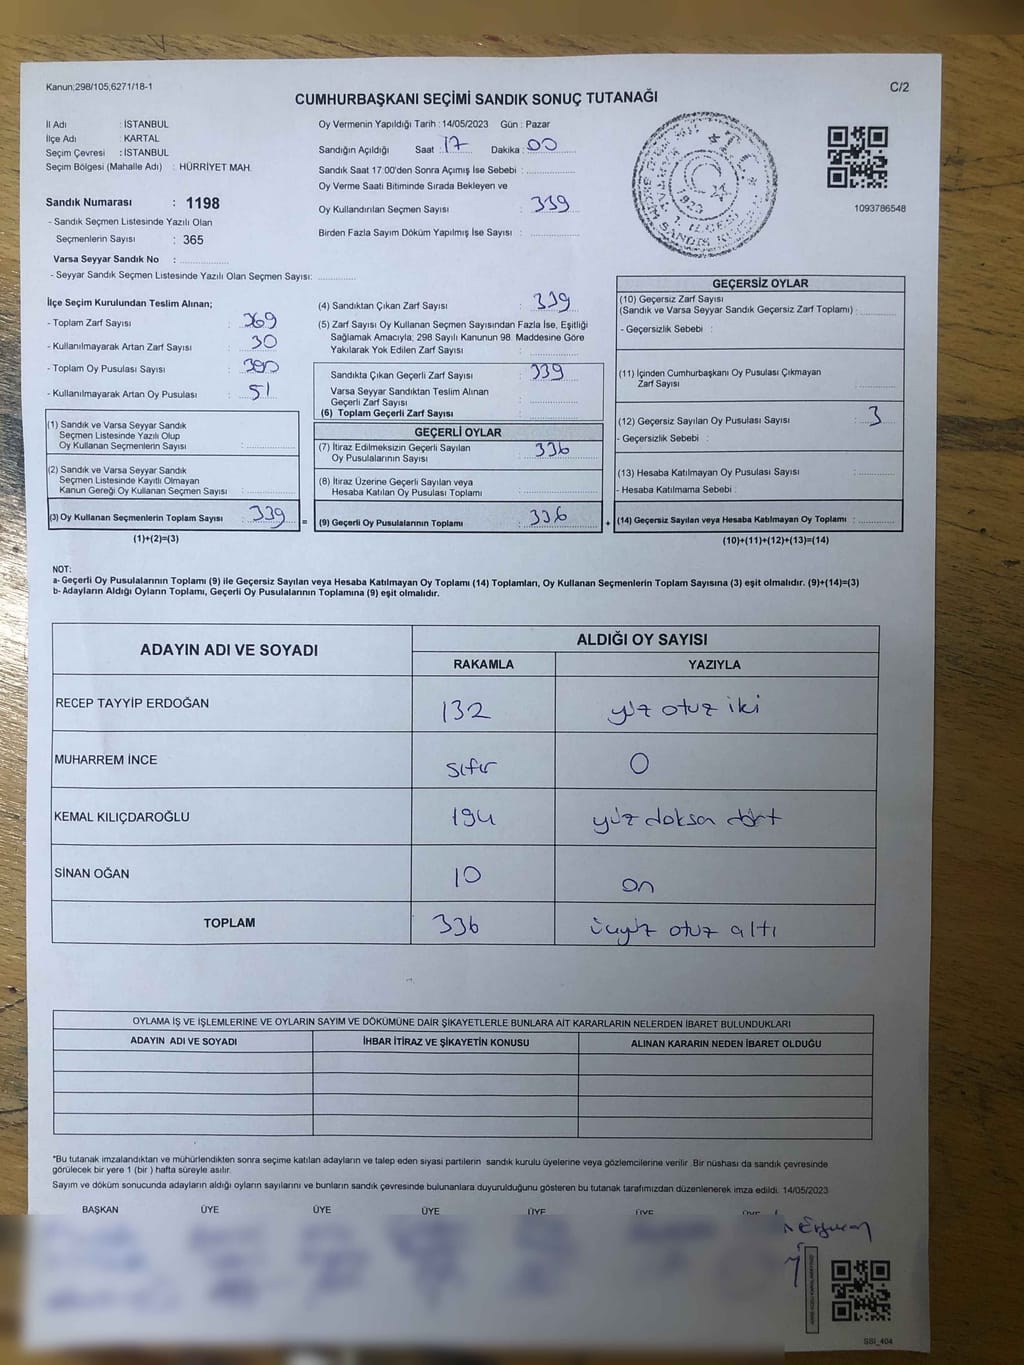 Kanun;298/105,6271/18-1
C/2
CUMHURBAŞKANI SEÇİMİ SANDIK SONUÇ TUTANAĞI
İl Adı : İSTANBUL
İlçe Adı : KARTAL
Seçim Çevresi : İSTANBUL
Seçim Bölgesi (Mahalle Adı) : HÜRRİYET MAH.
Sandık Numarası : 1198
- Sandık Seçmen Listesinde Yazılı Olan
Seçmenlerin Sayısı : 365
Varsa Seyyar Sandık No :
- Seyyar Sandık Seçmen Listesinde Yazılı Olan Seçmen Sayısı:
Oy Vermenin Yapıldığı Tarih : 14/05/2023 Gün : Pazar
Sandığın Açıldığı Saat : 17 Dakika : 00
Sandık Saat 17:00'den Sonra Açımış İse Sebebi :
Oy Verme Saati Bitiminde Sırada Bekleyen ve
Oy Kullandırılan Seçmen Sayısı : 339
Birden Fazla Sayım Döküm Yapılmış İse Sayısı :
1093786548
İlçe Seçim Kurulundan Teslim Alınan;
- Toplam Zarf Sayısı : 369
- Kullanılmayarak Artan Zarf Sayısı : 30
- Toplam Oy Pusulası Sayısı : 390
- Kullanılmayarak Artan Oy Pusulası : 51
(1) Sandık ve Varsa Seyyar Sandık
Seçmen Listesinde Yazılı Olup
Oy Kullanan Seçmenlerin Sayısı :
(2) Sandık ve Varsa Seyyar Sandık
Seçmen Listesinde Kayıtlı Olmayan
Kanun Gereği Oy Kullanan Seçmen Sayısı :
(3) Oy Kullanan Seçmenlerin Toplam Sayısı : 339
(1)+(2)=(3)
(4) Sandıktan Çıkan Zarf Sayısı : 339
(5) Zarf Sayısı Oy Kullanan Seçmen Sayısından Fazla İse, Eşitliği
Sağlamak Amacıyla; 298 Sayılı Kanunun 98. Maddesine Göre
Yakılarak Yok Edilen Zarf Sayısı :
Sandıkta Çıkan Geçerli Zarf Sayısı : 339
Varsa Seyyar Sandıktan Teslim Alınan
Geçerli Zarf Sayısı :
(6) Toplam Geçerli Zarf Sayısı :
GEÇERLİ OYLAR
(7) İtiraz Edilmeksizin Geçerli Sayılan
Oy Pusulalarının Sayısı : 336
(8) İtiraz Üzerine Geçerli Sayılan veya
Hesaba Katılan Oy Pusulası Toplamı :
= (9) Geçerli Oy Pusulalarının Toplamı : 336 +
GEÇERSİZ OYLAR
(10) Geçersiz Zarf Sayısı
(Sandık ve Varsa Seyyar Sandık Geçersiz Zarf Toplamı) :
- Geçersizlik Sebebi :
(11) İçinden Cumhurbaşkanı Oy Pusulası Çıkmayan
Zarf Sayısı :
(12) Geçersiz Sayılan Oy Pusulası Sayısı : 3
- Geçersizlik Sebebi :
(13) Hesaba Katılmayan Oy Pusulası Sayısı :
- Hesaba Katılmama Sebebi :
(14) Geçersiz Sayılan veya Hesaba Katılmayan Oy Toplamı :
(10)+(11)+(12)+(13)=(14)
NOT:
a- Geçerli Oy Pusulalarının Toplamı (9) ile Geçersiz Sayılan veya Hesaba Katılmayan Oy Toplamı (14) Toplamları, Oy Kullanan Seçmenlerin Toplam Sayısına (3) eşit olmalıdır. (9)+(14)=(3)
b- Adayların Aldığı Oyların Toplamı, Geçerli Oy Pusulalarının Toplamına (9) eşit olmalıdır.
ADAYIN ADI VE SOYADI
ALDIĞI OY SAYISI
RAKAMLA YAZIYLA
RECEP TAYYİP ERDOĞAN 132 yüz otuz iki
MUHARREM İNCE sıfır 0
KEMAL KILIÇDAROĞLU 194 yüz doksa dört
SİNAN OĞAN 10 on
TOPLAM 336 üçyüz otuz altı
OYLAMA İŞ VE İŞLEMLERİNE VE OYLARIN SAYIM VE DÖKÜMÜNE DAİR ŞİKAYETLERLE BUNLARA AİT KARARLARIN NELERDEN İBARET BULUNDUKLARI
ADAYIN ADI VE SOYADI İHBAR İTİRAZ VE ŞİKAYETİN KONUSU ALINAN KARARIN NEDEN İBARET OLDUĞU
*Bu tutanak imzalandıktan ve mühürlendikten sonra seçime katılan adayların ve talep eden siyasi partilerin sandık kurulu üyelerine veya gözlemcilerine verilir. Bir nüshası da sandık çevresinde
görülecek bir yere 1 (bir ) hafta süreyle asılır.
Sayım ve döküm sonucunda adayların aldığı oyların sayılarını ve bunların sandık çevresinde bulunanlara duyurulduğunu gösteren bu tutanak tarafımızdan düzenlenerek imza edildi. 14/05/2023
BAŞKAN ÜYE ÜYE ÜYE ÜYE ÜYE ÜYE
SSI_404